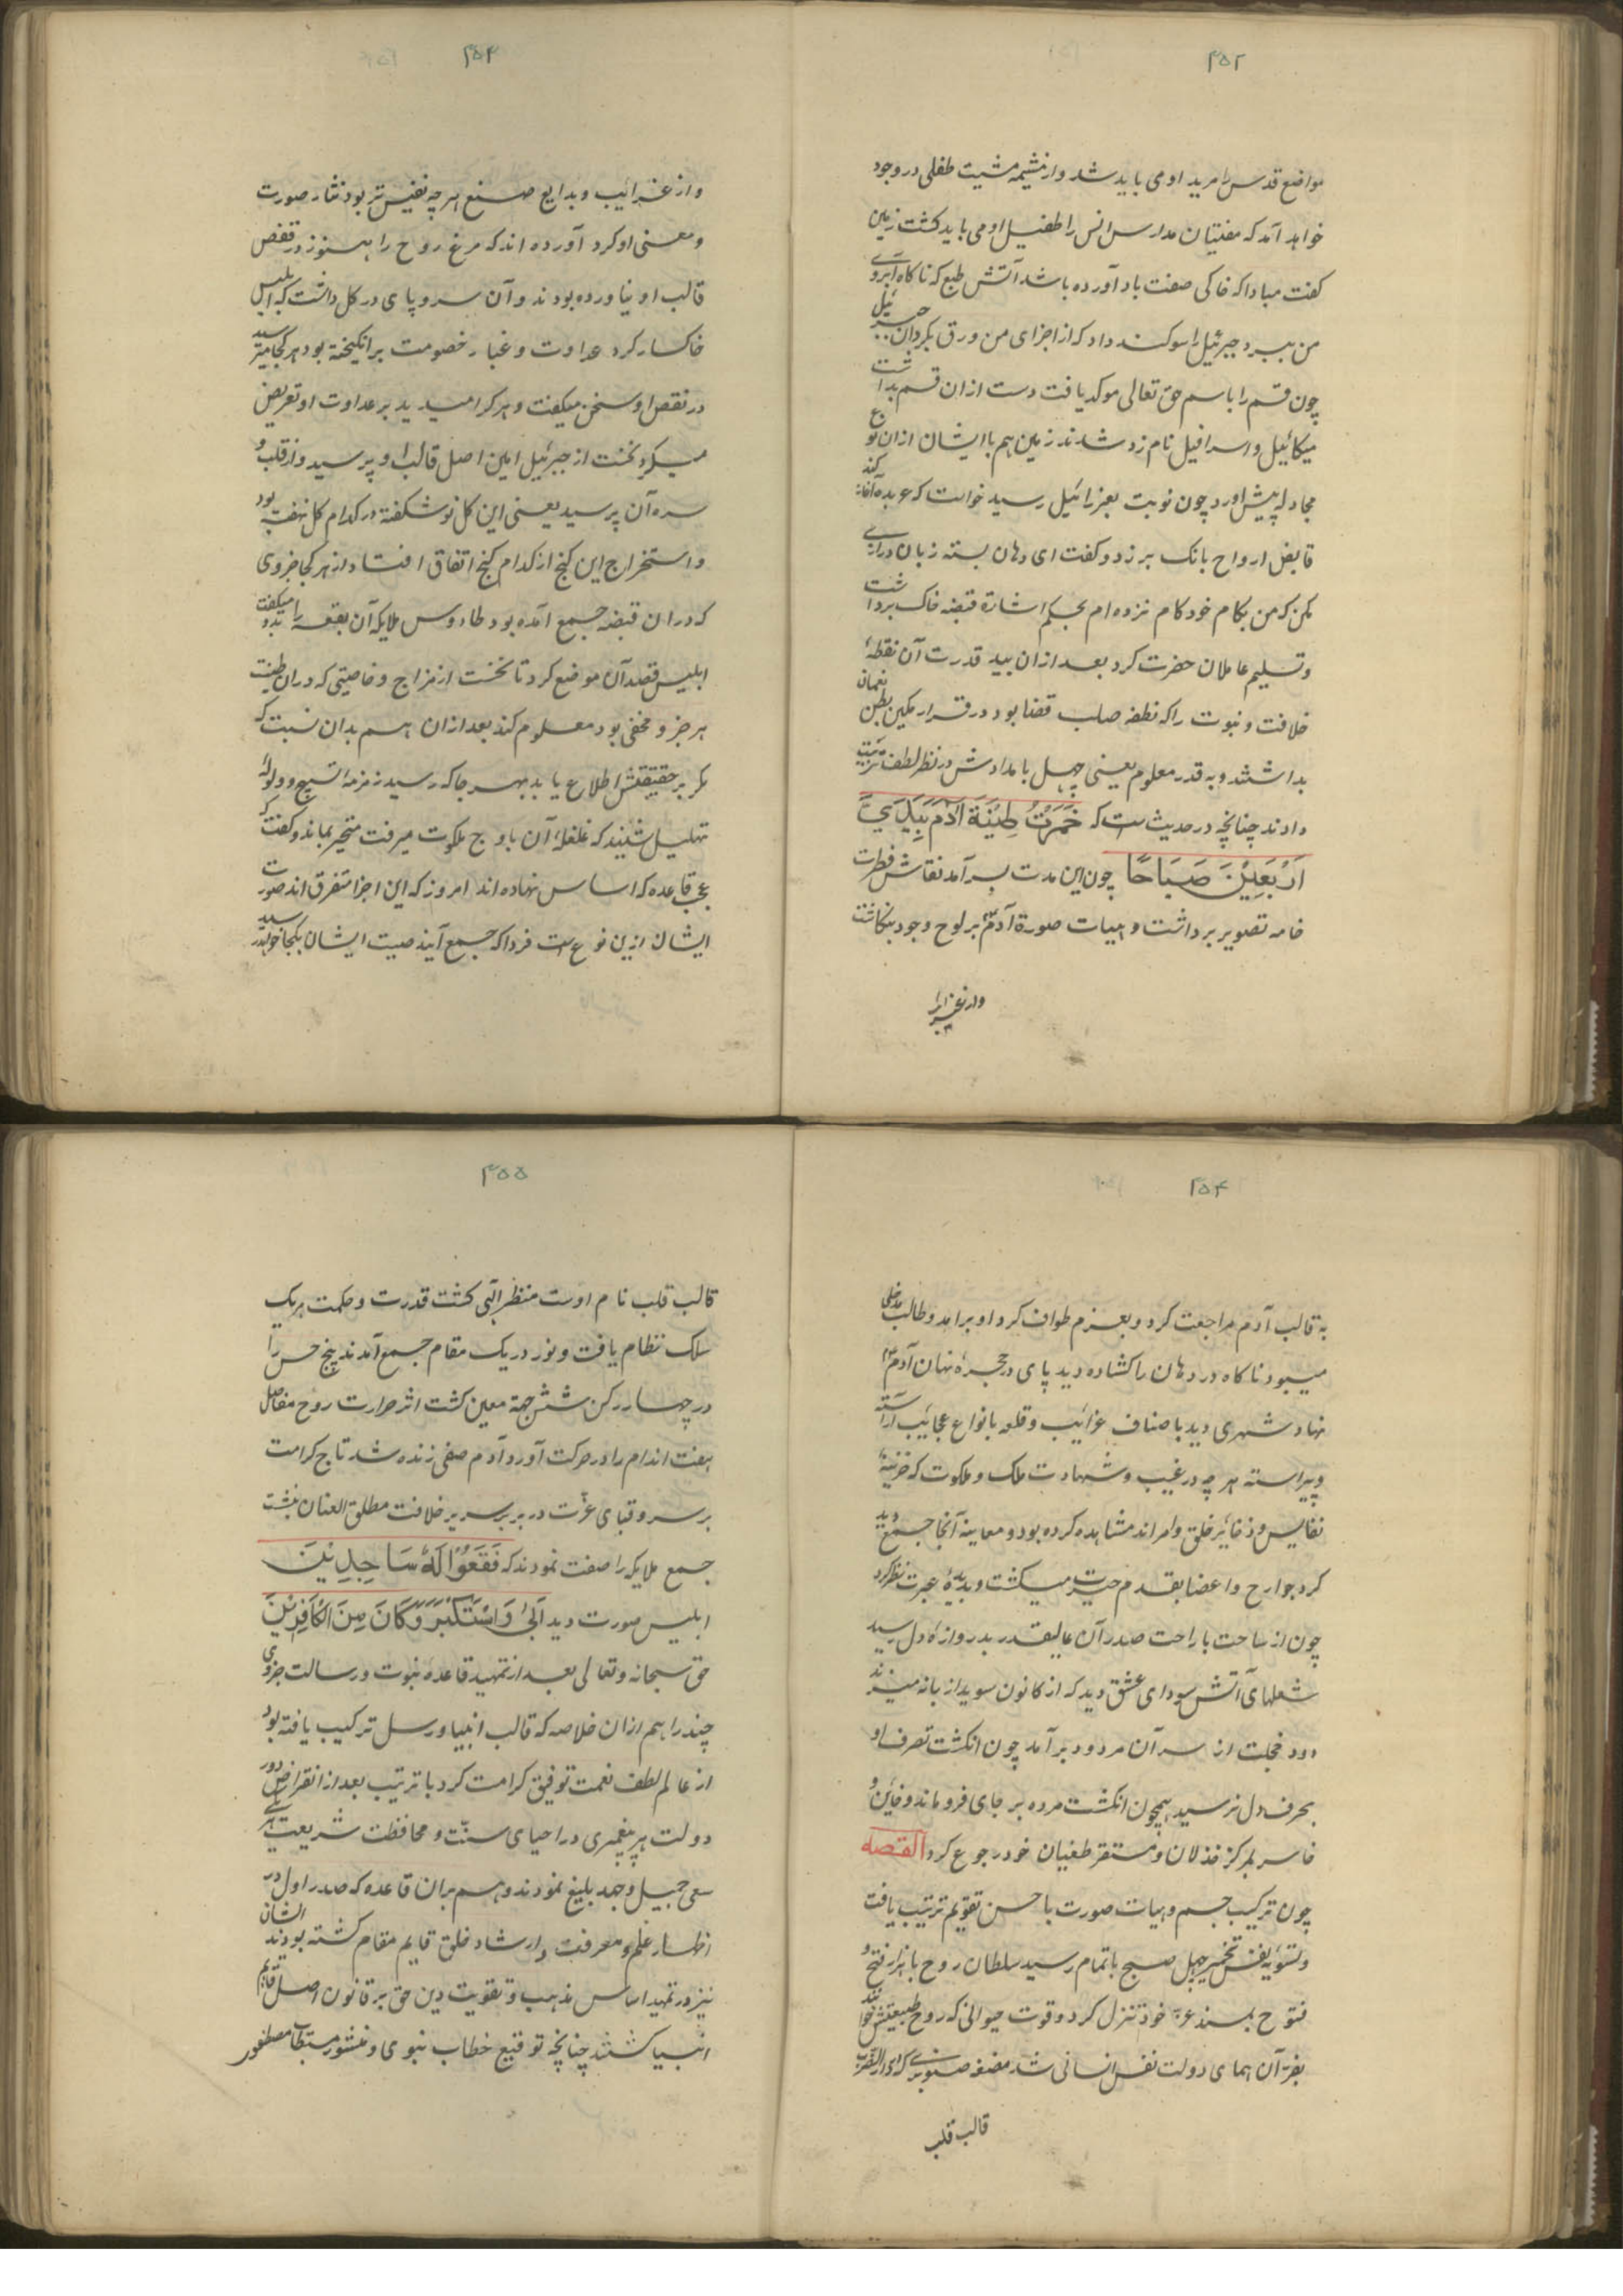 ۴۵۲
مواضع قدس را مرید او می باید شد و از مشیمه مشیت طفلی در وجود
خواهد آمد که مفتیان مدارس انس را طفیل او می باید کشت زمین
کفت مبادا که خاکی صفت باد آورده باشد آتش طبع که ناکاه آبروی
من ببرد جبرئیل را سوکند داد که از اجزای من ورق بکردان جبرئیل
چون قسم را باسم حق تعالی موکد یافت دست از ان قسم بداشت
میکائیل و اسرافیل نام زد شدند زمین هم با ایشان از ان نوع
مجادله پیش اورد چون نوبت بعزرائیل رسید خواست که عربده آغاز کند
قابض ارواح بانک بر زد و کفت ای دهان بسته زبان درازی
مکن که من بکام خود کام نزده ام بحکم اشارة قبضه خاک برداشت
و تسلیم عاملان حضرت کرد بعد از ان بید قدرت آن نقطهٔ
خلافت و نبوت را که نطفه صلب قضا بود در قرار مکین بطن نعمان
بداشتند و به قدر معلوم یعنی چهل بامدادش در نظر لطف تربیت
دادند چنانچه در حدیث است که خَمَّرْتُ طِیْنَةَ آدَمَ بِیَدَیَّ
اَرْبَعِیْنَ صَبَاحًا چون این مدت بسر آمد نقاش فطرت
خامه تصویر برداشت و هیات صورة آدم بر لوح وجود بنکاشت
واز غرایب
۴۵۳
و از غرایب و بدایع صنع هر چه نفیس تر بود نثار صورت
و معنی او کرد آورده اند که مرغ روح را هنوز در قفص
قالب او نیاورده بودند و آن سر و پای در کل داشت که ابلیس
خاکسار کرد عداوت و غبار خصومت برانکیخته بود هر کجا میرسید
در نقص او سخن میکفت و هر کرا میدید بر عداوت او تعریض
میکرد نخست از جبرئیل امین اصل قالب او پرسید و از قلب و
سره آن پرسید یعنی این کل نوشکفته در کدام کل نهفته بود
و استخراج این کنج از کدام کنج اتفاق افتاد و از هر کجا جزوی
که در ان قبضه جمع آمده بود طاءوس ملایکه آن بقعه را بدو میکفت
ابلیس قصد آن موضع کرد تا نخست از مزاج و خاصیتی که در ان طینت
هر جزو مخفی بود معلوم کند بعد از ان هم بدان نسبت که
مکر بر حقیقتش اطلاع یابد بهر جا که رسید زمزمه تسبیح و ولوله
تهلیل شنید که غلغلهٔ آن باوج ملکوت میرفت متحیر بماند و کفت که
عجب قاعده که اساس نهاده اند امروز که این اجزا متفرق اند صورت
ایشان ازین نوع است فردا که جمع آیند صیت ایشان بکجا خواهد رسید
۴۵۴
به قالب آدم مراجعت کرد و بعزم طواف کرد او برامد و طالب مدخلی
میبود ناکاه در دهان را کشاده دید پای در حجرهٔ نهان آدم
نهاد شهری دید باصناف غرائب و قلعه بانواع عجائب آراسته
و پیراسته هر چه در غیب و شهادت ملک و ملکوت که خزینهٔ
نفایس و ذخایر خلق و امر اند مشاهده کرده بود و معاینه آنجا جمع دید
کرد جوارح و اعضا بقدم حیرت میکشت و بدیدهٔ عبرت نظر کرد
چون از ساحت با راحت صدر آن عالیقدر بدروازهٔ دل رسید
شعلهای آتش سودای عشق دید که از کانون سویدا زبانه میزند
دود خجلت از سر آن مردود بر آمد چون انکشت تصرف او
بحرف دل نرسید همچون انکشت مرده بر جای فرو ماند و خایب و
خاسر بمرکز خذلان و مستقر طغیان خود رجوع کرد القصه
چون ترکیب جسم و هیات صورت باحسن تقویم ترتیب یافت
و تسویه یفتش تخمیر چهل صبح باتمام رسید سلطان روح با هزار فتح و
فتوح بمسند عز خود تنزل کرد و قوت حیوانی که روح طبیعتش خوانند
بفر آن همای دولت نفس انسانی شد مضغه صنوبری که
قالب قلب
۴۵۵
قالب قلب نام اوست منظر الهی کشت قدرت و حکمت هر یک
سلک نظام یافت و نور در یک مقام جمع آمدند پنج حس را
در چهار رکن شش جهة معین کشت اثر حرارت روح مفاصل
هفت اندام را در حرکت آورد آدم صفی زنده شد تاج کرامت
بر سر و قبای عزت در بر بر سریر خلافت مطلق العنان بنشت
جمع ملایکه را صفت نمودند که فَقَعُوْا لَهُ سَاجِدِیْنَ
ابلیس صورت دید اَبَیٰ وَاسْتَکْبَرَ وَکَانَ مِنَ الْکَافِرِیْنَ
حق سبحانه و تعالی بعد از تمهید قاعدهٔ نبوت و رسالت جزوی
چند را هم از ان خلاصه که قالب انبیا و رسل ترکیب یافته بود
از عالم لطف نعمت توفیق کرامت کرد با ترتیب بعد از انقراض دور
دولت هر پیغمبری در احیای سنّت و محافظت شریعت
سعی جمیل و جهد بلیغ نمودند و هم بران قاعده که صدر اول در
اظهار علم و معرفت و ارشاد خلق قایم مقام کشته بودند ایشان
نیز در تمهید اساس مذهب و تقویت دین حق بر قانون اصل قایم
انبیا کشتند چنانچه توقیع خطاب نبوی و منشور مستطاب مصطفوی